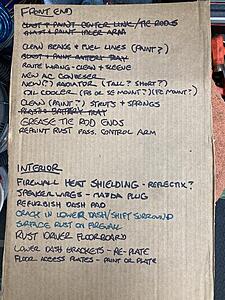 FRONT END
BLAST + PAINT CENTER LINK/TIE RODS
BLAST + PAINT IDLER ARM
CLEAN BRAKE + FUEL LINES (PAINT?)
BLAST + PAINT BATTERY TRAY
ROUTE WIRING - CLEAN + SLEEVE
NEW AC CONDENSER
NEW(?) RADIATOR (TALL? SHORT?)
OIL COOLER (FB OR SE MOUNT?) (PS MOUNT?)
CLEAN (PAINT?) STRUTS + SPRINGS
PLASTIC BATTERY TRAY
GREASE TIE ROD ENDS
REPAINT RUST PASS. CONTROL ARM
INTERIOR
FIREWALL HEAT SHIELDING - REFLECTIX?
SPEAKER WIRES - MAZDA PLUG
REFURBISH DASH PAD
CRACK IN LOWER DASH/SHIFT SURROUND
SURFACE RUST ON FIREWALL
RUST DRIVER FLOORBOARD
LOWER DASH BRACKETS - RE-PLATE
FLOOR ACCESS PLATES - PAINT OR PLATE